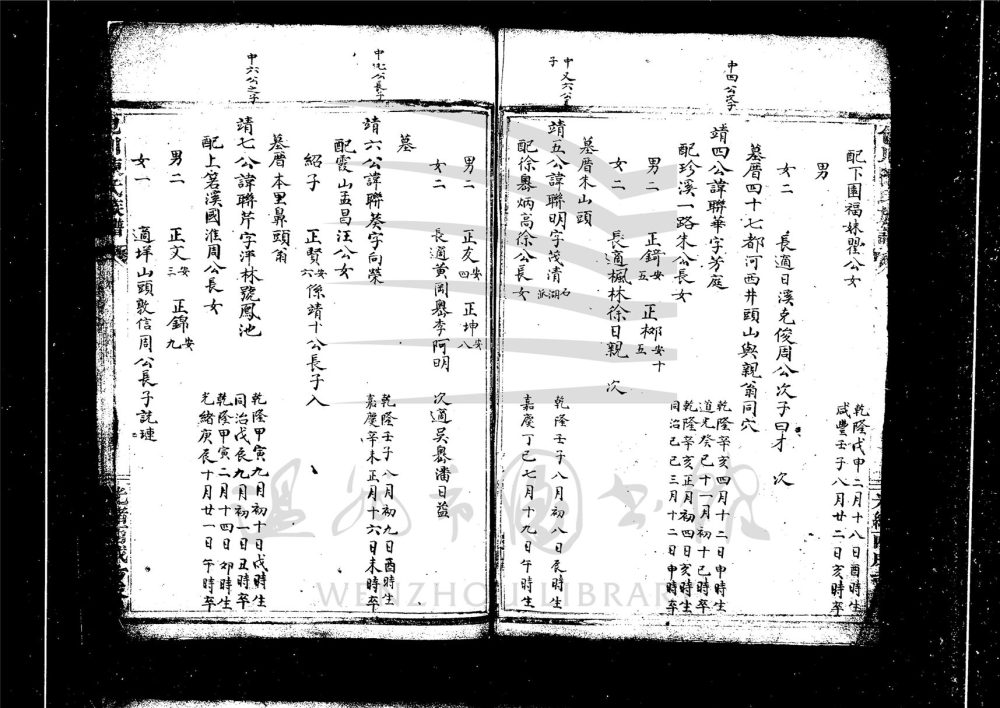 配下園福妹瞿公女
乾隆戊申二月十八日酉時生
咸豐壬子八月廿二日亥時卒
男
女二 長適日溪克俊周公次子曰才 次
墓厝四十七都河西井頭山與親翁同穴
中四公次子
靖四公諱聯華字芳庭
乾隆辛亥四月十二日申時生
道光癸巳十一月初十巳時卒
配珍溪一路朱公長女
乾隆辛亥正月初四日亥時生
同治己巳三月十二日申時卒
男二 正錡安五 正郴安十五
女二 長適楓林徐日親 次
墓厝朱山頭
中又六公長子
靖五公諱聯明字茂清石湖派
乾隆壬子八月初八日辰時生
配徐嶴炳高徐公長女
嘉慶丁巳七月十九日午時生
男二 正友安四 正坤安八
女二 長適黃岡嶴李阿明 次適吳嶴潘日益
墓
中七公長子
靖六公諱聯葵字向榮
乾隆壬子八月初九日酉時生
嘉慶辛未正月十六日未時卒
配霞山孟昌汪公女
紹子 正賢安六係靖十公長子入
墓厝本里鼻頭翁
中六公之子
靖七公諱聯芹字泮林號鳳池
乾隆甲寅九月初十日戌時生
同治戊辰九月初一日丑時卒
配上茗溪國淮周公長女
乾隆甲寅二月十四日卯時生
光緒庚辰十月廿一日午時卒
男二 正文安三 正錦安九
女一 適垟山頭敦信周公長子託璉
溫州市圖書館
WENZHOU LIBRARY